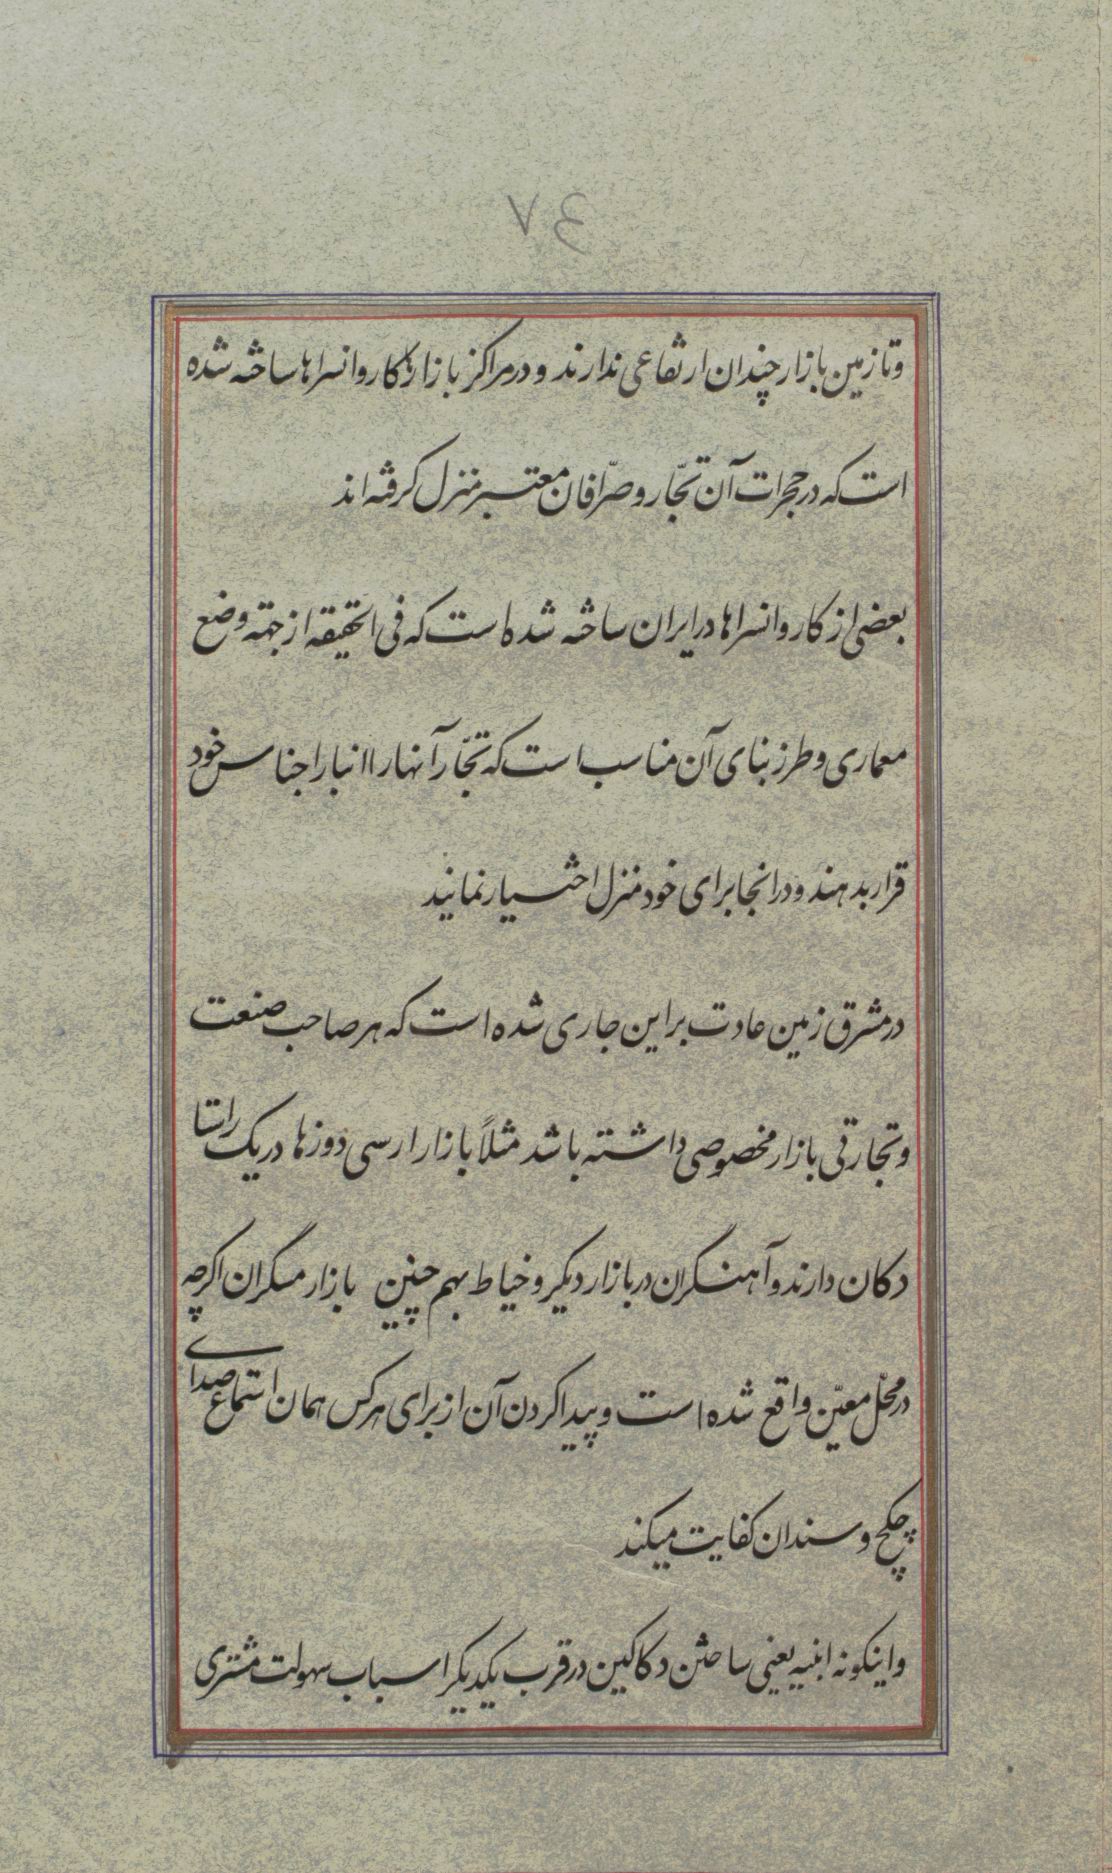 ٧٤
وتا زمین بازار چندان ارتفاعی ندارند و در مراکز بازارها کاروانسراها ساخته شده
است که در حجرات آن تجّار و صرّافان معتبر منزل کرفته اند
بعضی از کاروانسراها در ایران ساخته شده است که فی الحقیقه از جهته وضع
معماری و طرز بنای آن مناسب است که تجّار آنها را انبار اجناس خود
قرار بدهند و در انجا برای خود منزل اختیار نمایند
در مشرق زمین عادت بر این جاری شده است که هر صاحب صنعت
و تجارتی بازار مخصوصی داشته باشد مثلاً بازار ارسی دوزها در یک راستا
دکان دارند و آهنکران در بازار دیکر و خیاط بهم چنین بازار مسکران اکرچه
در محلّ معیّن واقع شده است و پیدا کردن آن از برای هر کس همان استماع صدای
چکچ و سندان کفایت میکند
و اینکونه ابنیه یعنی ساختن دکاکین در قرب یکدیکر اسباب سهولت مشتری